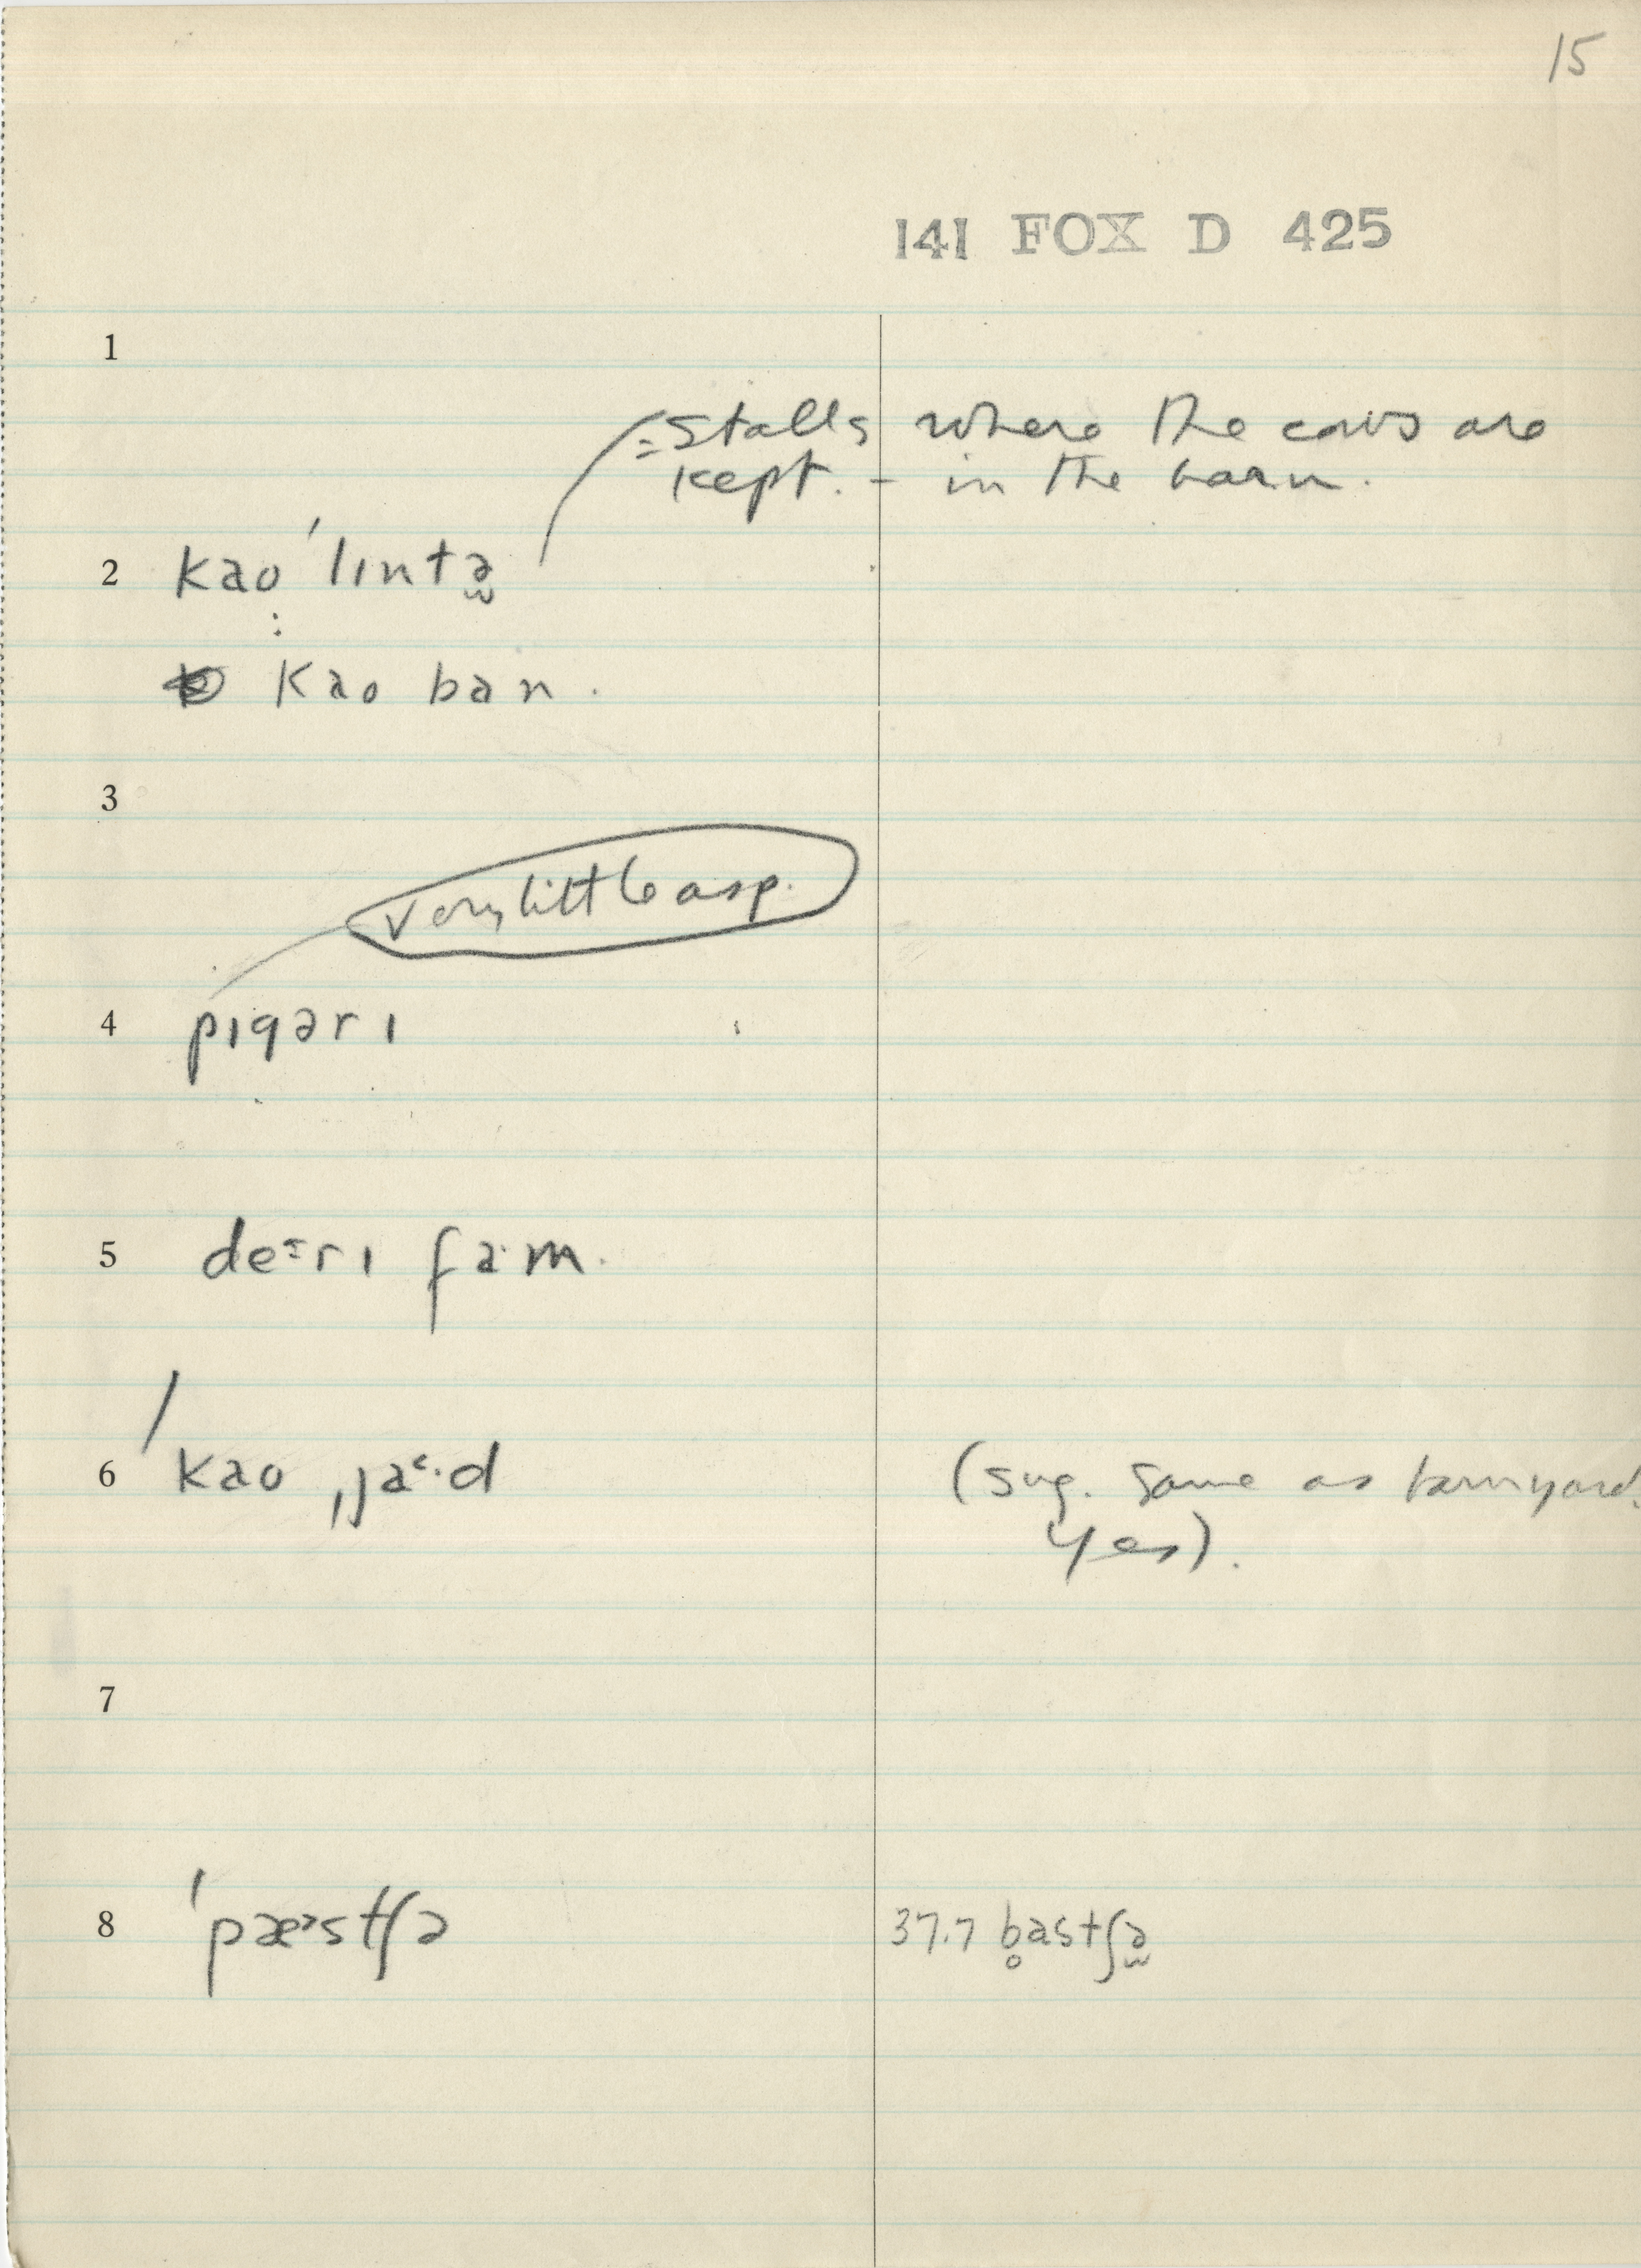 15
141 FOX D 425
1
= Stalls where the cows are
kept. - in the barn.
2 kao ˈlɪntə̬
:
kao ban.
3
very little asp.
4 pɪgərɪ
5 deˑrɪ faˑm.
6 ˈkao ˌja˂ˑd (sug. same as barnyard.
yes).
7
8 ˈpæ˃stʃə 37.7 b̥astʃə̬